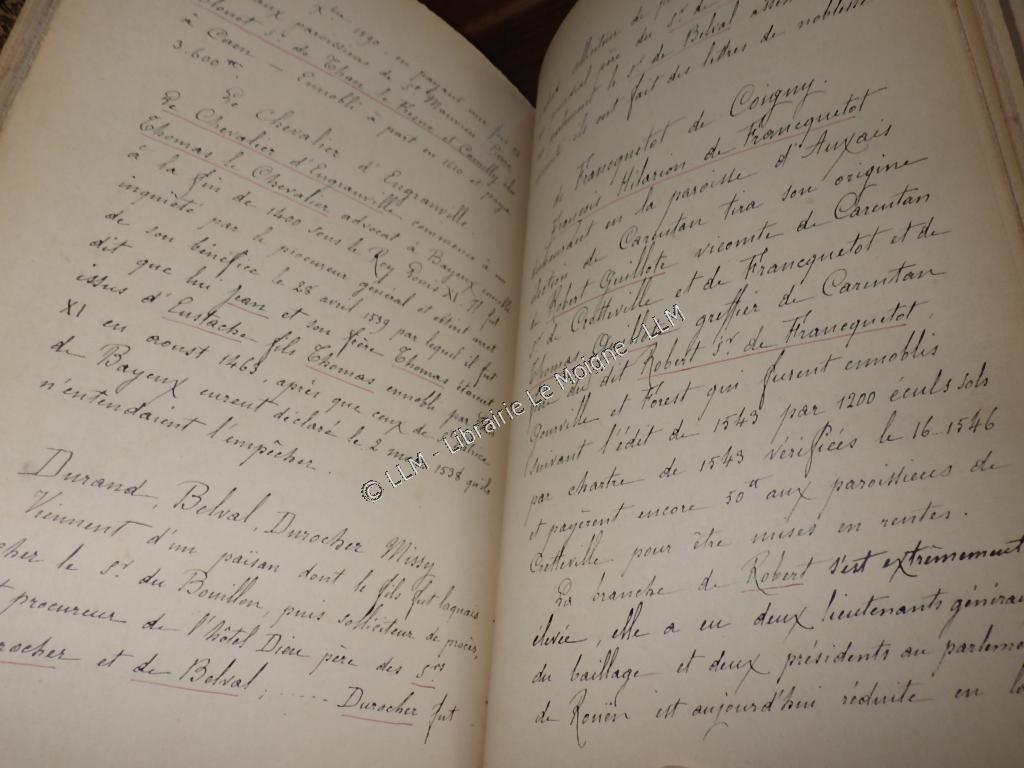 Xbre 1590. en payant une
aux paroissiens de St Maurice
Sr de Thaon le Fieur et Camilly
à Caen - Ennobli à part en 1610 et paya
3.600
Le Chevalier d'Engranville.
Le Chevalier d'Engranville commence à un
Thomas le Chevalier advocat à Bayeux ennobli
à la fin de 1400 sous le Roy Louis XI. Il fut
inquiété par le procureur général et obtint arret
de son bénéfice le 28 avril 1539 par lequel il fut
dit que lui Jean et son frère Thomas étaient
issus d'Eustache fils Thomas ennobli par Louis
XI en aoust 1463, après que ceux de
de Bayeux eurent déclaré le 2 1538 qu'ils
n'entendaient l'empêcher.
Durand, Belval, Durocher Missy
Viennent d'un païsan dont le fils fut laquais
le Sr du Bouillon, puis solliciteur de procès,
procureur de l'hôtel Dieu père des Srs
Durocher et de Belval; Durocher fut
élection de
père du Sr de
le Sr de Belval
ils ont fait des lettres de noblesse
de Francquetot de Coigny.
François Hilarion de Francquetot
demeurant en la paroisse d'Auxais
élection de Carentan tira son origine
de Robert Guillote vicomte de Carentan
Sr de Cretteville et de Francquetot et de
Thomas Guillote greffier de Carentan
dit Robert Sr de Francquetot,
Gourville et Forest qui furent ennoblis
suivant l'édit de 1543 par 1200 éculs sols
par chartre de 1543 vérifiées le 16 1546
et payèrent encore 50tt aux paroissiens de
Cretteville pour être mises en rentes.
La branche de Robert s'est extrêmement
élevée, elle a eu deux lieutenants généraux
du baillage et deux présidents au parlement
de Rouën est aujourd'hui réduite en la
© LLM - Librairie Le Moigne - LLM